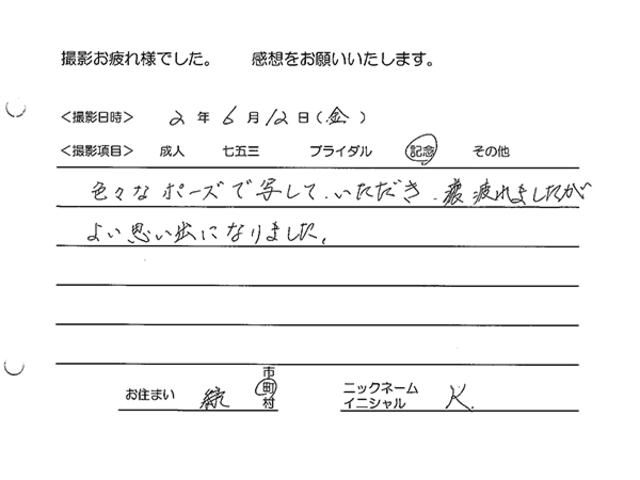 撮影お疲れ様でした。 感想をお願いいたします。
<撮影日時> 2 年 6 月 12 日 (金)
<撮影項目> 成人 七五三 ブライダル 記念 その他
色々なポーズで写して、いただき、疲れましたが
よい思い出になりました。
お住まい 市 町 村
ニックネーム
イニシャル K.